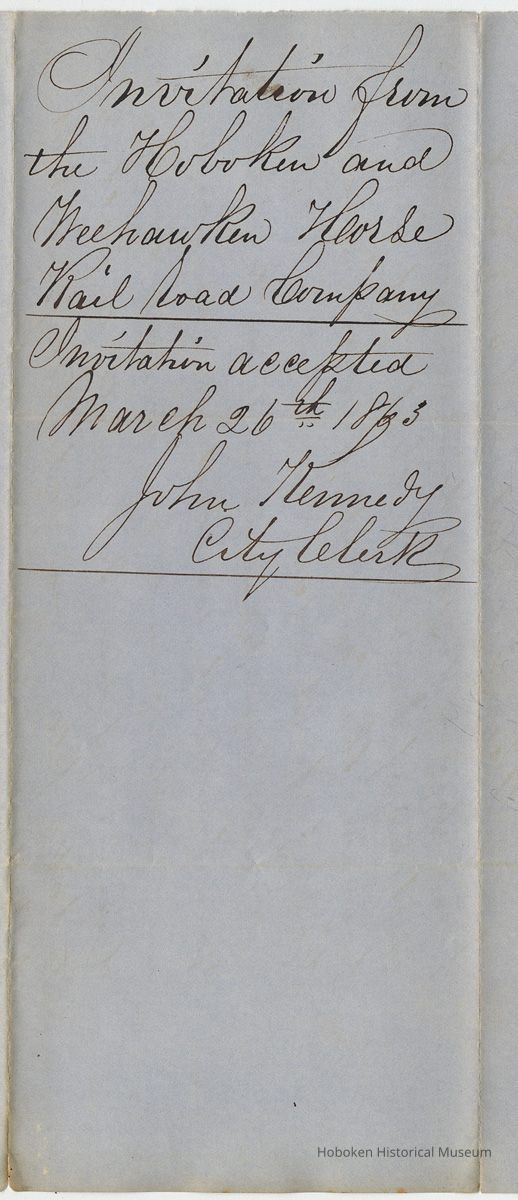 Invitation from
the Hoboken and
Weehawken Horse
Rail road Company
Invitation accepted
March 26th 1863
John Kennedy
City Clerk
Hoboken Historical Museum